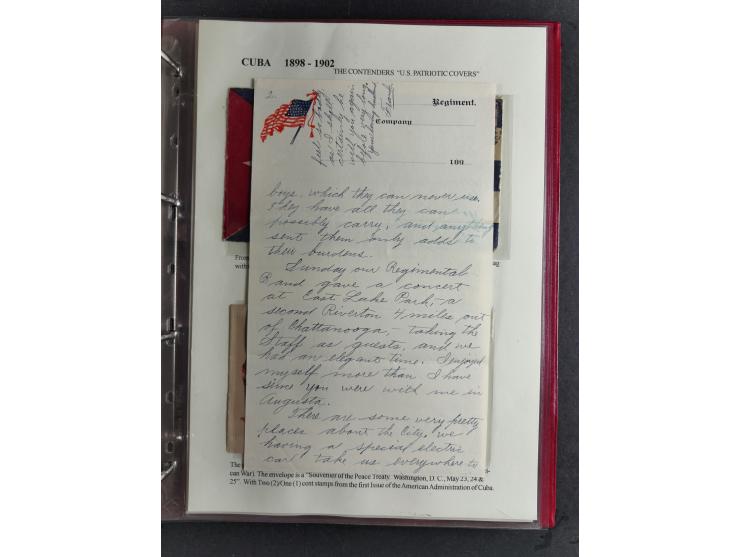 CUBA 1898 - 1902
THE CONTENDERS "U.S. PATRIOTIC COVERS"
2
feel so badly
as I shall
certainly be
with you again
before very long.
Frank
Regiment.
Company
189
boys, which they can never use,
They have all they can
possibly carry, and anything
sent them only adds to
their burdens.
Sunday our Regimental
Band gave a concert
at East Lake Park,- a
second Riverton 4 miles out
of Chattanooga,- taking the
Staff as guests, and we
had an elegant time. I enjoyed
myself more than I have
since you were with me in
Augusta.
There are some very pretty
places about the City, we
having a special electric
car take us everywhere to
From
with
ag
The
can War). The envelope is a "Souvenier of the Peace Treaty Washington, D. C., May 23, 24 &
25". With Two (2)/One (1) cent stamps from the first Issue of the American Administration of Cuba.